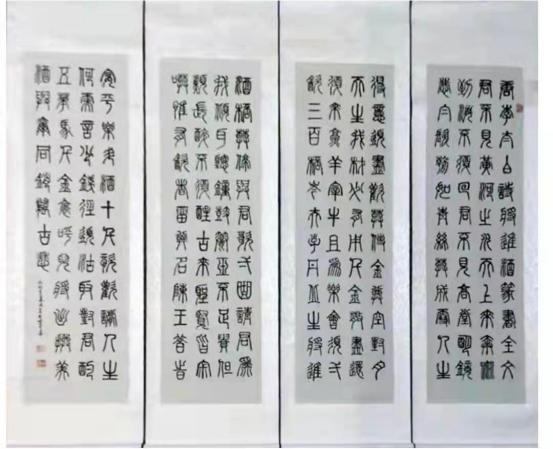 唐李太白詩將進酒篆書全文
君不見黃河之水天上來奔流
到海不復回君不見高堂明鏡
悲白髮朝如青絲暮成雪人生
得意須盡歡莫使金樽空對月
天生我材必有用千金散盡還
復來烹羊宰牛且為樂會須一
飲三百杯岑夫子丹丘生將進
酒杯莫停與君歌一曲請君為
我傾耳聽鐘鼓饌玉不足貴但
願長醉不復醒古來聖賢皆寂
寞惟有飲者留其名陳王昔時
宴平樂斗酒十千恣歡謔主人
何為言少錢徑須沽取對君酌
五花馬千金裘呼兒將出換美
酒與爾同銷萬古愁